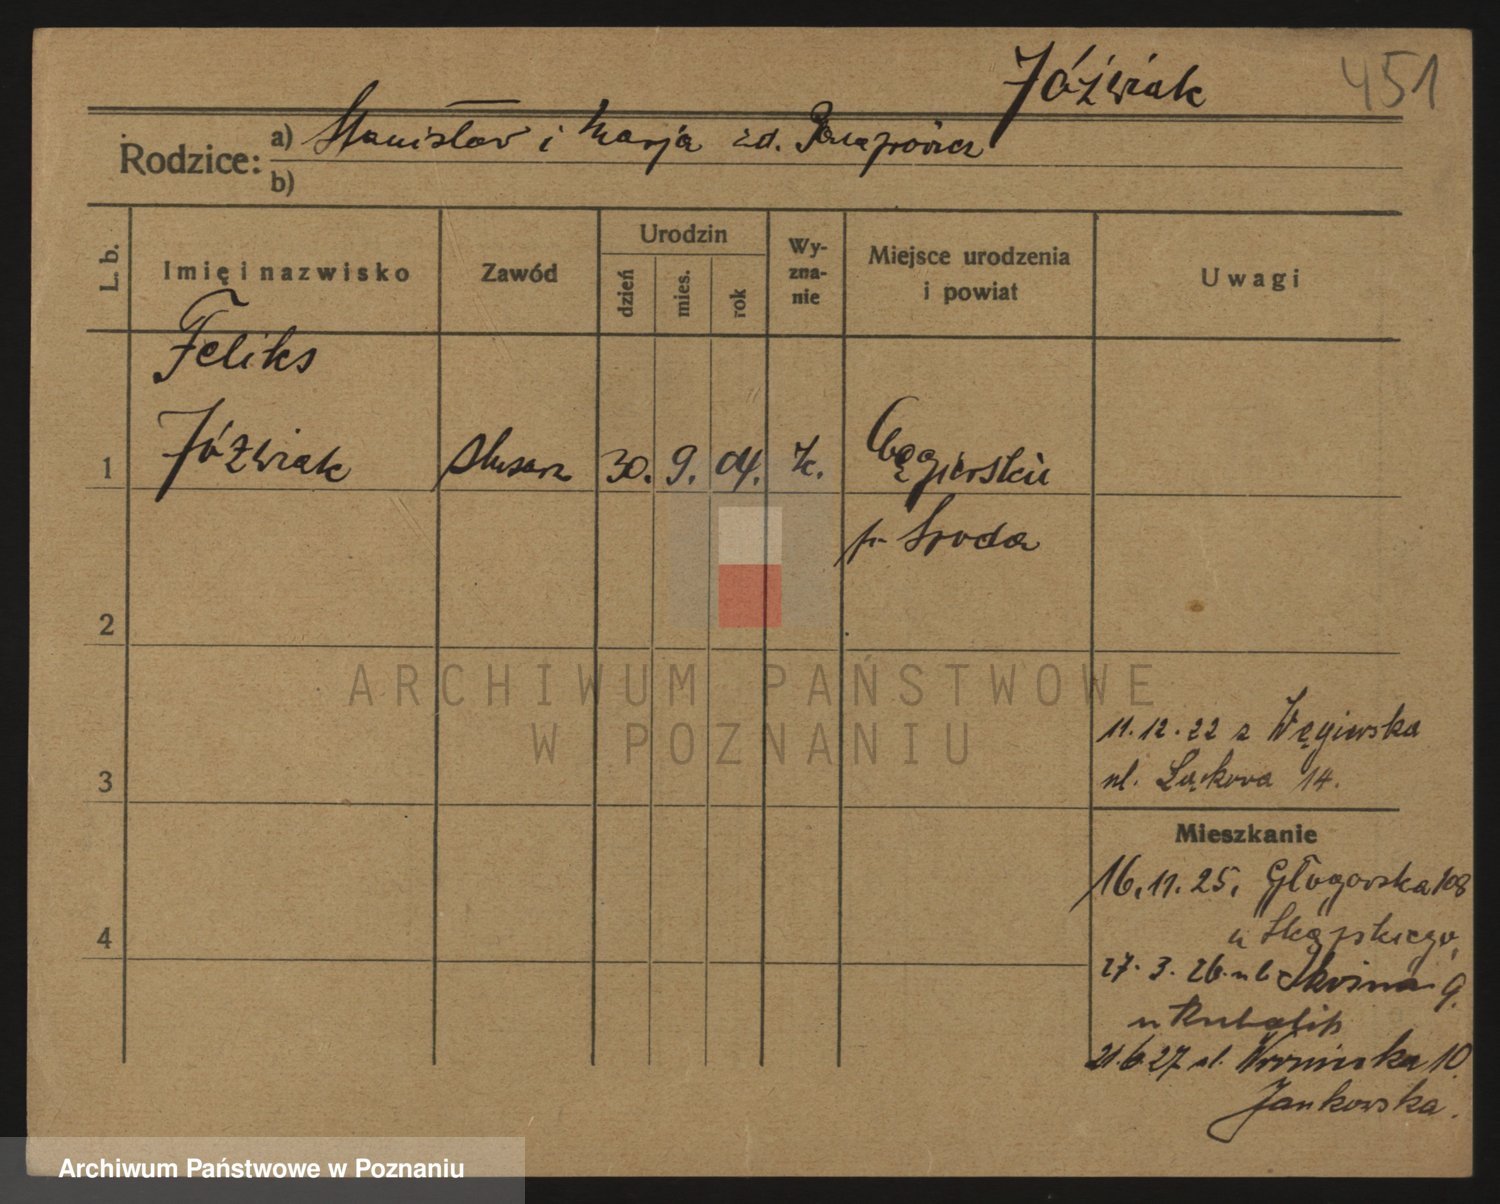 Jóźwiak 451
Rodzice: a) Stanisław i Marja zd.
b)
L. b. Imię i nazwisko Zawód Urodzin dzień mies. rok Wy-zna-nie Miejsce urodzenia i powiat Uwagi
Feliks
1 Jóźwiak ślusarz 30. 9. 04. k. Węgierskie
p. Środa
2
ARCHIWUM PAŃSTWOWE
W POZNANIU
11.12.22 z Węgierska
3 ul. Łąkowa 14.
Mieszkanie
16.11.25. Głogowska 108
4 u Skąpskiego
27.3.26. ul. 9.
u
21.6.27 ul. 10.
Jankowska.
Archiwum Państwowe w Poznaniu